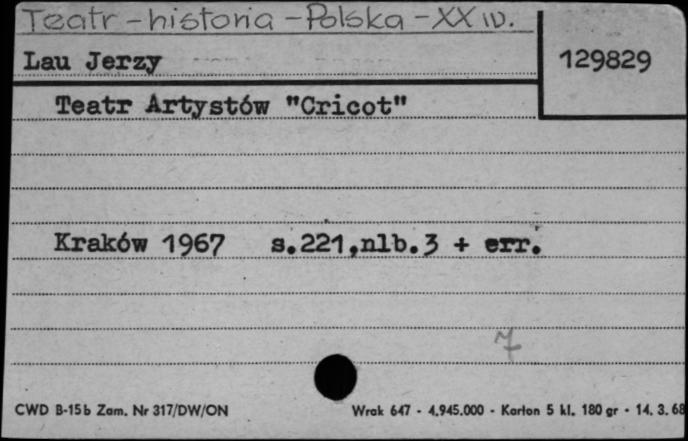 Teatr - historia - Polska - XX w.
Lau Jerzy
129829
Teatr Artystów "Cricot"
Kraków 1967 s.221,nlb.3 + err.
7
CWD B-15b Zam. Nr 317/DW/ON Wrak 647 - 4.945.000 - Karton 5 kl. 180 gr - 14. 3. 68